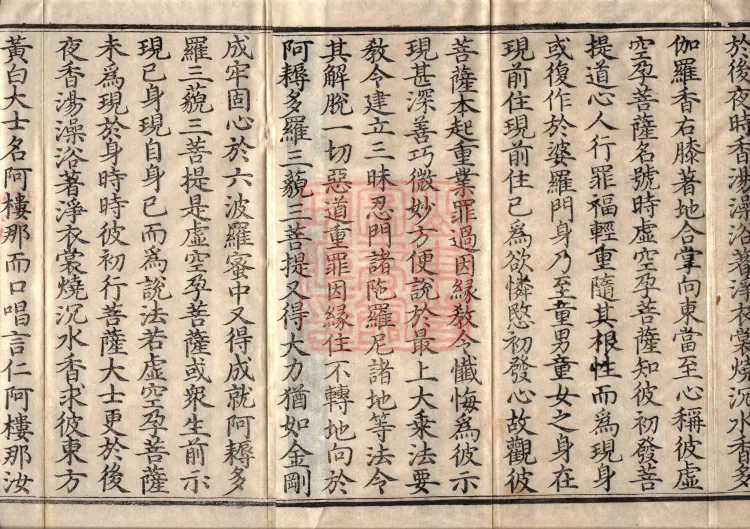 於後夜時香湯澡浴著淨衣裳燒沉水香多
伽羅香右膝著地合掌向東當至心稱彼虛
空孕菩薩名號時虛空孕菩薩知彼初發菩
提道心人行罪福輕重隨其根性而為現身
或復作於婆羅門身乃至童男童女之身在
現前住現前住已為欲憐愍初發心故觀彼
菩薩本起重業罪過因緣教令懺悔為彼示
現甚深善巧微妙方便說於最上大乘法要
教令建立三昧忍門諸陁羅尼諸地等法令
其解脫一切惡道重罪因緣住不轉地向於
阿耨多羅三藐三菩提又得大力猶如金剛
成牢固心於六波羅蜜中又得成就阿耨多
羅三藐三菩提是虛空孕菩薩或衆生前示
現已身現自身已而為說法若虛空孕菩薩
未為現於身時時彼初行菩薩大士更於後
夜香湯澡浴著淨衣裳燒沉水香求彼東方
黃白大士名阿樓那而口唱言仁阿樓那汝